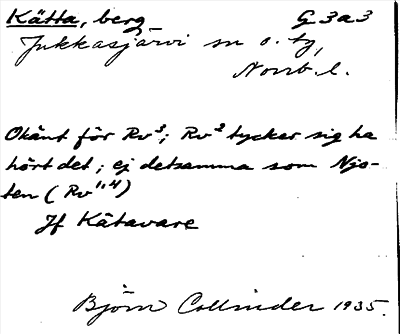 Kätta, berg G 3a3
Jukkasjärvi sn o. tg,
Norrb. l.
Okänt för Rv³; Rv² tycker sig ha
hört det; ej detsamma som Njo-
ten (Rv¹,⁴)
Jf Kätavare
Björn Collinder 1935.